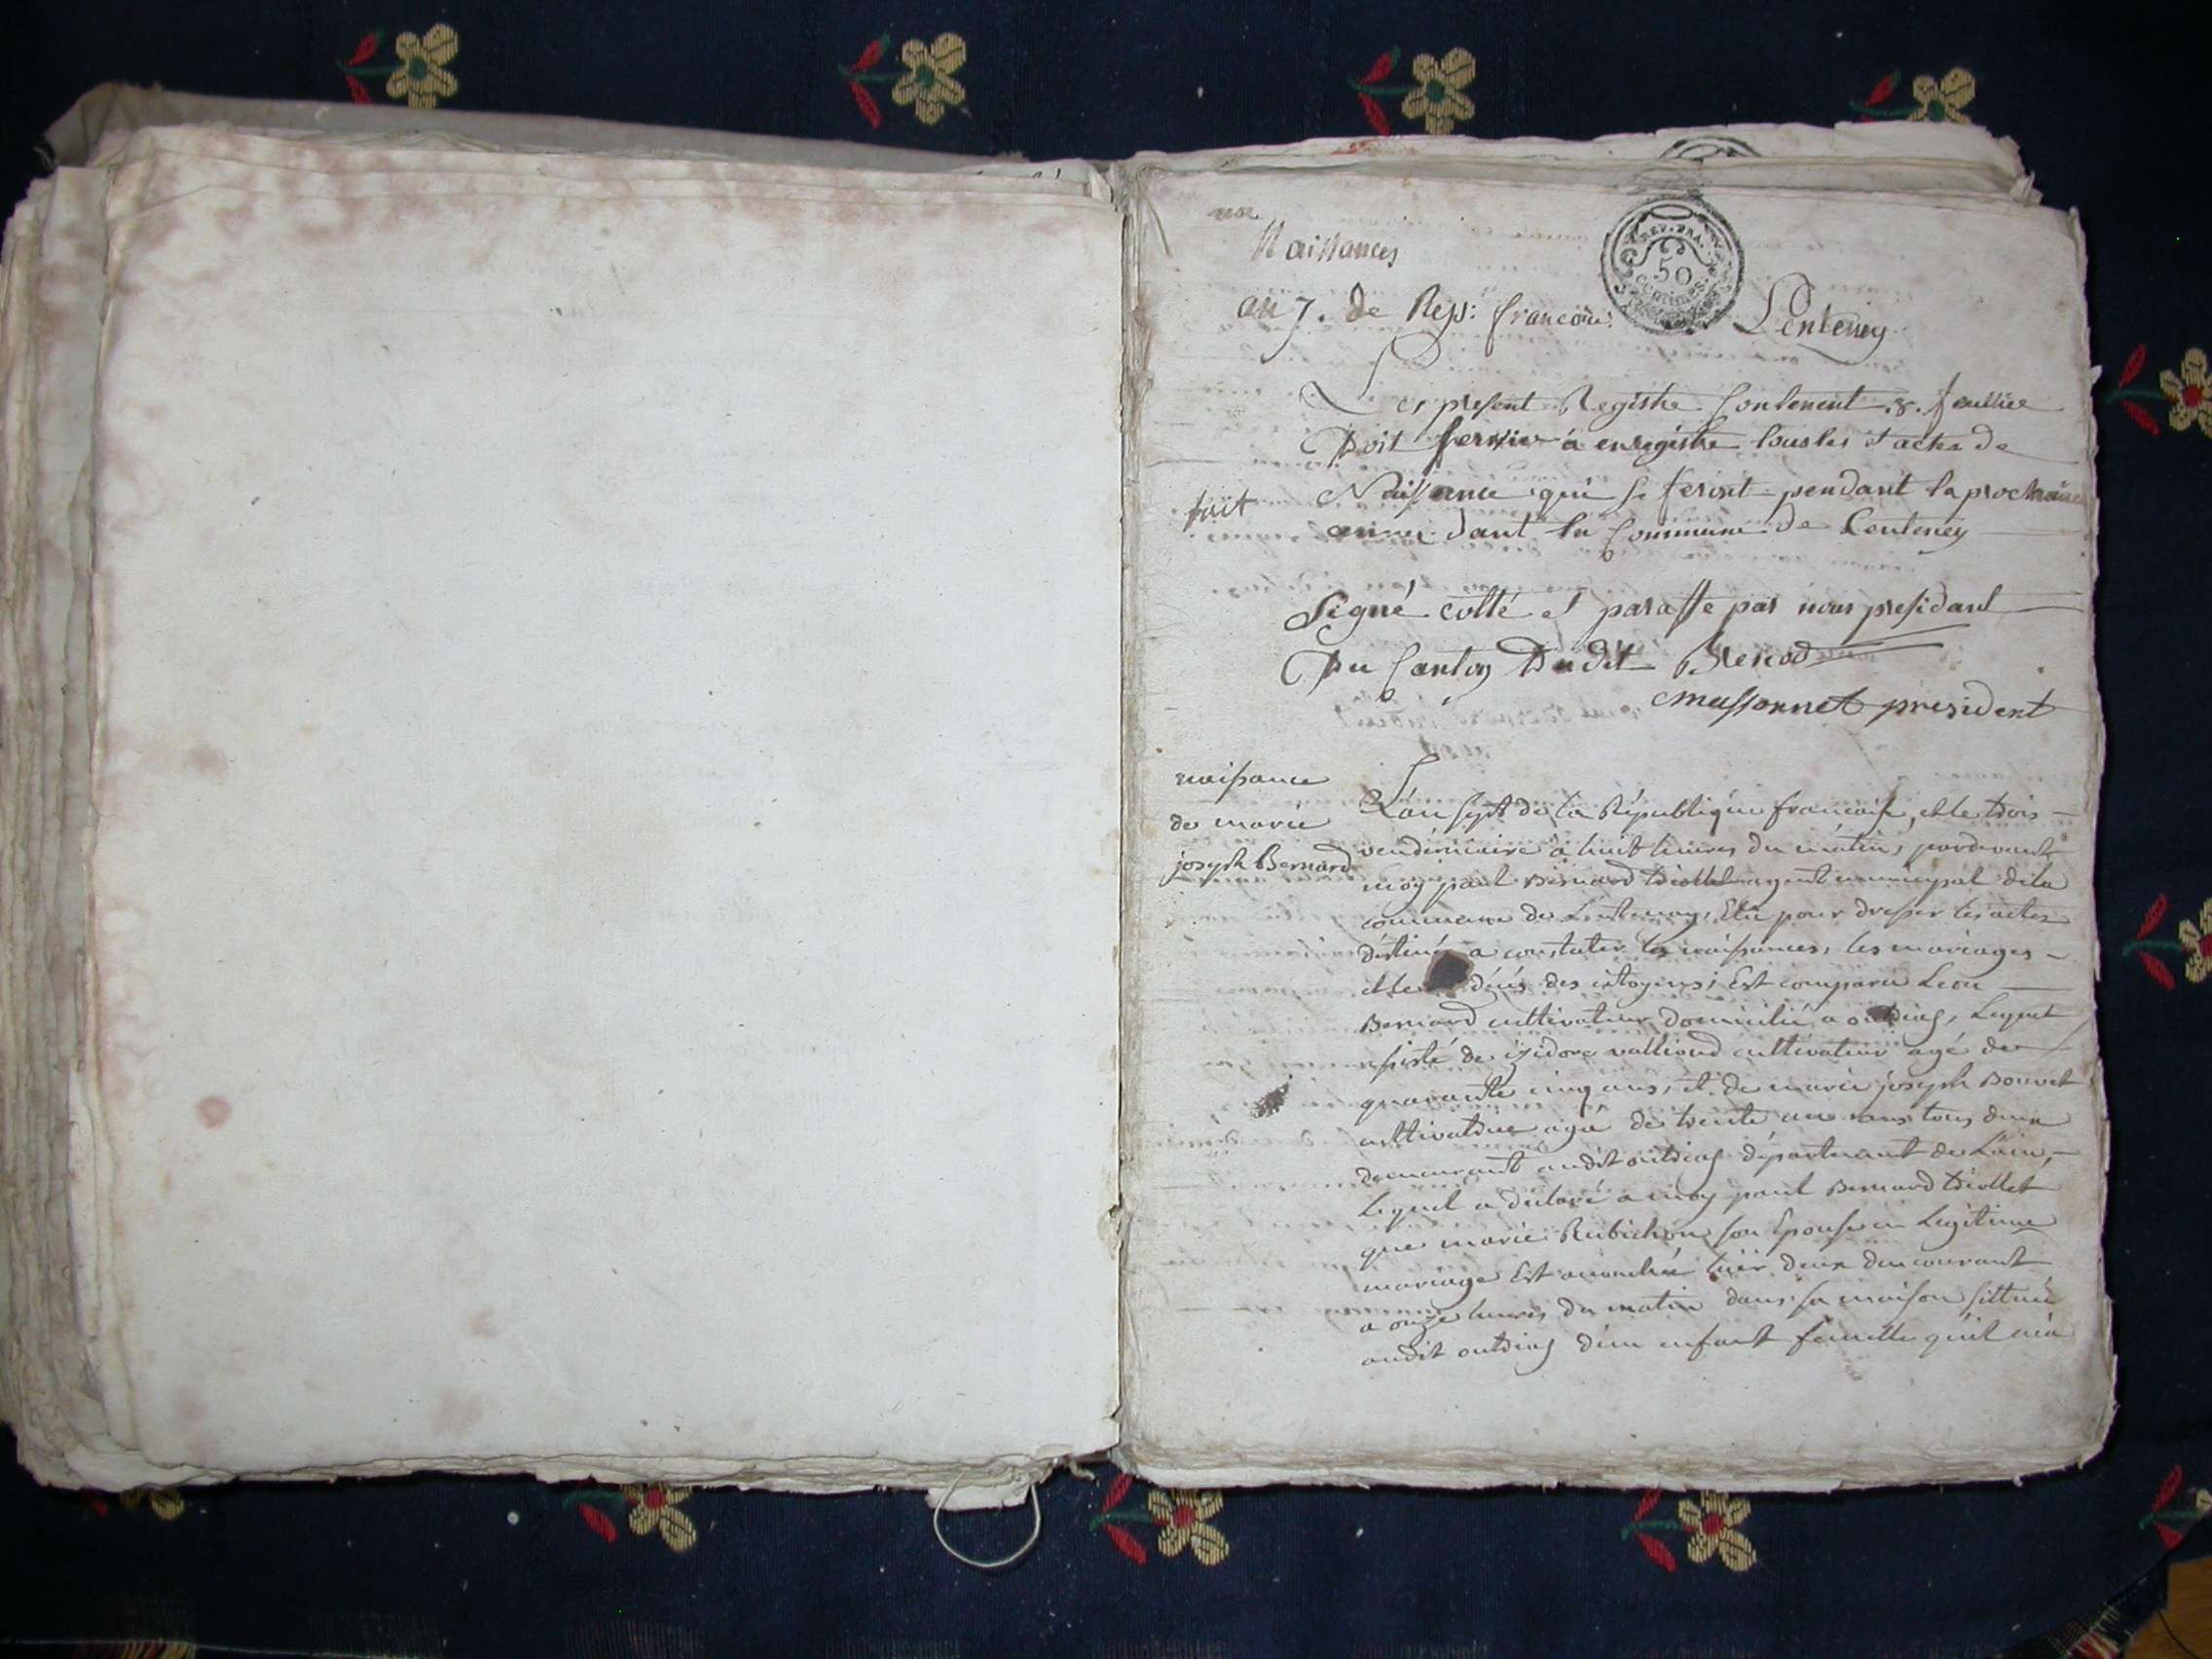 une
Naissances
an 7. de Rep: francoise.
REP. FRA.
50
centimes.
Lenteney
Les present Registre Contenent .8. feullie
Doit servire a enregistre tous les s actes de
Naissance qui se feront pendant la prochaine
fait
annee dant la Commune de Lenteney
Signé cotté et paraffe par nous presidant
Du Canton Dudit Brenod
Massonnet president
naissance
de marie
joseph Bernard
L'an sept de la République francaise, et le trois
vendémiaire a huit heures du matin, pardevant
moy paul Bernard triollet agent municipal de la
commune de Lentenay, Elu pour dresser les actes
déstinés a constater les naissances, les mariages
et le décés des citoyens; Est comparu Leon
Bernard cultivateur domicilié a outriag, Lequel
sisté de izidore vallioud cultivateur agé de
quarante cinq ans, et de marie joseph Bouvet
cultivatrice agé de trente un ans tous deux
demeurant audit outriag département de L'ain,
Lequel a déclaré a moy paul Bernard triollet
que marie Rubichon son Epouse en Légitime
mariage Est accouchée hier deux du courant
a onze heures du matin dans sa maison sittuée
audit outriag d'un enfant femelle qu'il m'a